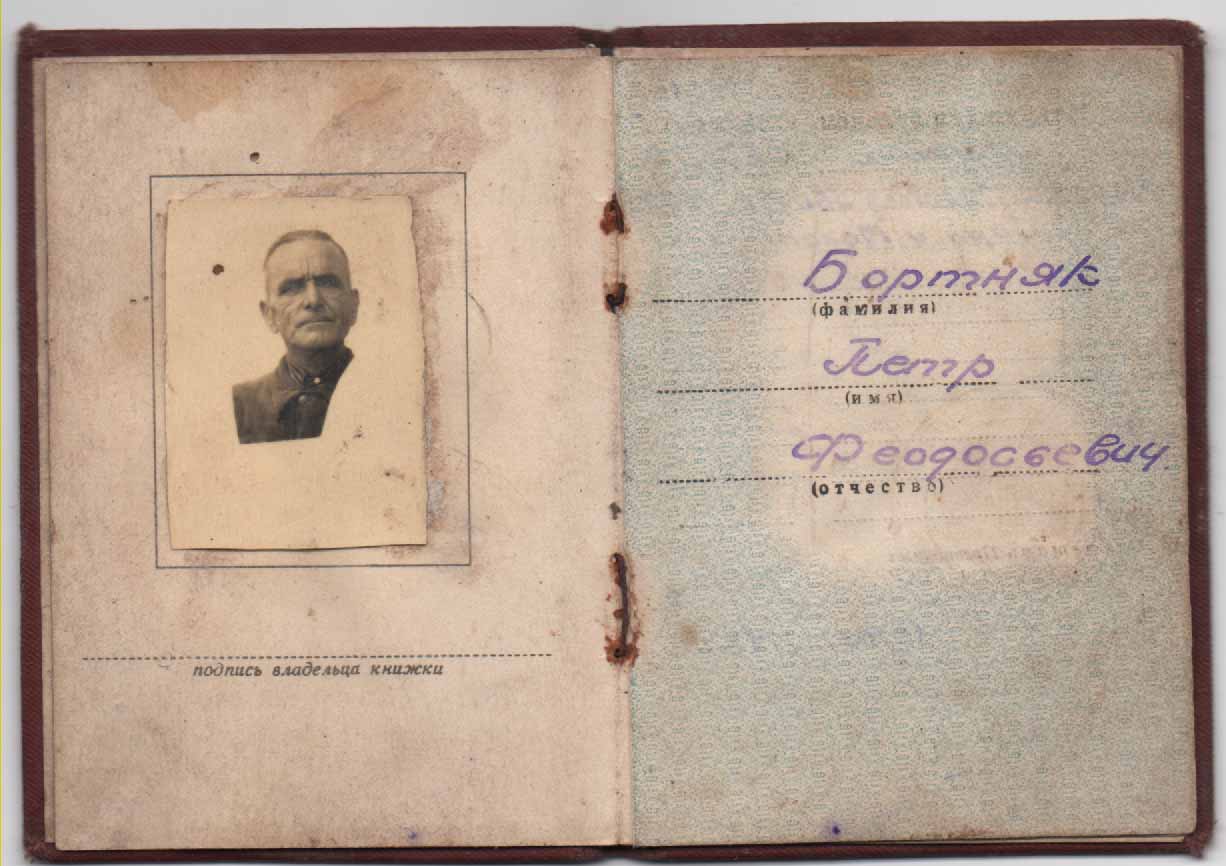 подпись владельца книжки
Бортняк
(фамилия)
Петр
(имя)
Феодосьевич
(отчество)